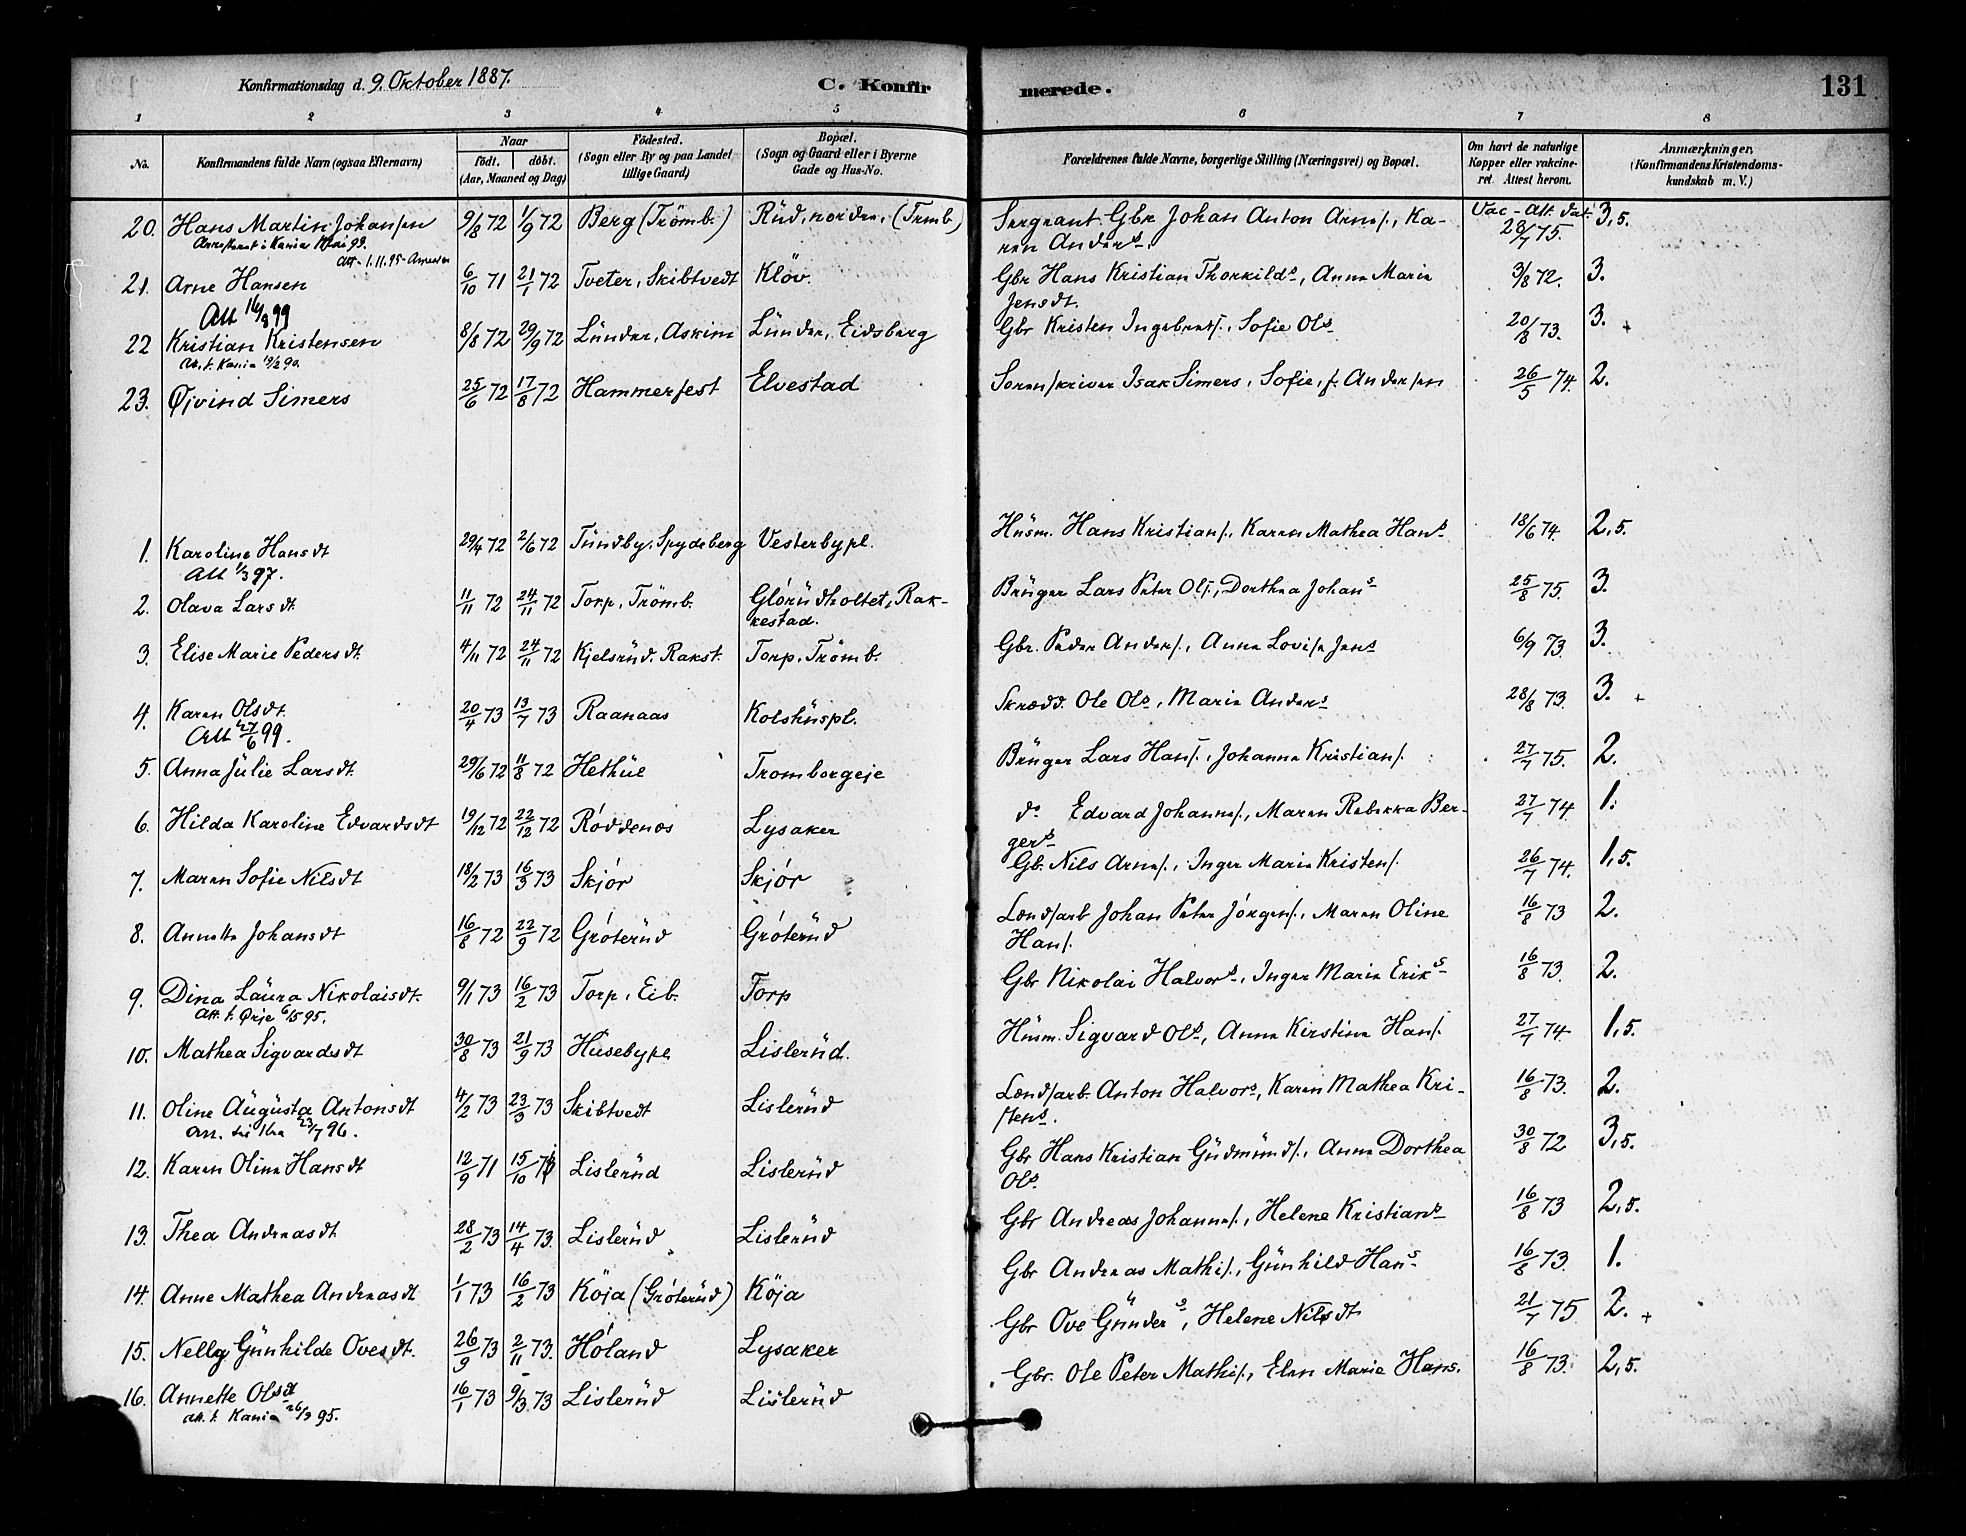 Konfirmationsdag d. 9. Oktober 1887.
C. Konfir
merede.
131
1 2 3 4 5 6 7 8
No.
Konfirmandens fulde Navn (ogsaa Efternavn)
Naar
födt. döbt.
(Aar, Maaned og Dag)
Födested.
(Sogn eller By og paa Landet
tillige Gaard)
Bopæl.
(Sogn og Gaard eller i Byerne
Gade og Hus-No.
Forældrenes fulde Navne, borgerlige Stilling (Næringsvei) og Bopæl.
Om havt de naturlige
Kopper eller vakcine-
ret. Attest herom.
Anmærkninger.
(Konfirmandens Kristendoms-
kundskab m. V.)
20. Hans Martin Johansen 9/8 72 1/9 72 Berg (Trömb.) Rüd, nordre, (Trmb.) Sergeant Gbr Johan Anton Arns/., Ka- Vac-Att. dat. 28/7 75. 3,5.
ren Anders.
Att. 1.11.95
21. Arne Hansen 6/10 71 21/1 72 Tveter, Skibtvedt Klöv. Gbr Hans Kristian Thorkilds, Anna Maria 3/8 72. 3.
Jensdt.
Att 16/8 99
22 Kristian Kristensen 8/8 72 29/9 72 Lünder, Askim Lünder, Eidsberg Gbr Kristen Ingebrets/., Sofie Ols 20/8 73. 3. +
Att. t. Kania 19/2 90.
23. Øjvind Simers 25/6 72 17/8 72 Hammerfest Elvestad Sorenskriver Isak Simers, Sofie, f. Andersen 26/5 74. 2.
1. Karoline Hansdt 29/4 72 2/6 72 Tündby, Spydeberg Vesterbypl. Hüsm. Hans Kristians/., Karen Mathea Hans 18/6 74. 2,5.
Att 1/3 97.
2. Olava Larsdt. 11/11 72 24/11 72 Torp, Trömb. Glórüdholtet, Rak- Brüger Lars Peter Ols/., Dorthea Johans 25/8 75. 3.
kestad.
3. Elise Marie Pedersdt. 4/11 72 24/11 72 Kjelsrüd, Rakst. Torp, Trömb. Gbr. Peder Anders/., Anna Lovise Jens 6/9 73. 3.
4. Karen Olsdt. 20/4 73 13/7 73 Raanaas Kolshüspl. Skrædd. Ole Ols, Maria Anders 28/8 73. 3. +
Att 27/6 99.
5. Anna Jülie Larsdt. 29/6 72 11/8 72 Hethüe Tromborgeje Brüger Lars Hans/., Johanne Kristians/. 27/7 75. 2.
6. Hilda Karoline Edvardsdt 19/12 72 22/12 72 Róddenes Lysaker do Edvard Johanns/., Maren Rebekka Ber- 27/7 74. 1.
gers
7. Maren Sofie Nilsdt 18/2 73 16/3 73 Skjór Skjór Gb. Nils Arns/., Inger Maria Kristens/. 26/7 74. 1,5.
8. Annette Johansdt 16/8 72 22/9 72 Gróterüd Gróterüd Løndsarb Johan Peter Jórgens/., Maren Oline 16/8 73 2.
Hans/.
9. Dina Laüra Nikolaisdt. 9/1 73 16/2 73 Torp, Eib. Torp Gbr Nikolai Halvors, Inger Maria Eriks 16/8 73. 2.
Att. t. Ørje 6/5 95.
10. Mathea Sigvardsdt 30/8 73 21/9 73 Hüsebype Lislerüd. Hüsm. Sigvard Ols, Anna Kirstina Hans/. 27/7 74. 1,5.
11. Oline Aügüsta Antonsdt 4/2 73 23/3 73 Skibtvedt Lislerüd Løndsarb. Anton Halvors, Karen Mathea Kri- 16/8 73. 2.
stens.
23/7 96.
12. Karen Olina Hansdt 12/9 71 15/10 71 Lislerüd Lislerüd Gbr Hans Kristian Güdmünds/., Anna Dorthea 30/8 72 3,5.
Ols.
13. Thea Andreasdt 28/2 73 14/4 73. Lislerüd Lislerüd Gbr Andreas Johanns/., Helene Kristians 16/8 73 2,5.
14. Anne Mathea Andreasdt 1/1 73 16/2 73 Köja (Gróterüd) Köja Gbr Andreas Mathis/., Günhild Hans 16/8 73. 1.
15. Nelly Günhilde Ovesdt. 26/9 73 2/11 73. Hóland Lysaker Gbr Ove Günders, Helene Nilsdt 21/7 75. 2. +
16. Annette Olsdt 16/1 73 9/3 73 Lislerüd Lislerüd Gbr. Ole Peter Mathis/., Elen Marie Hans. 16/8 73. 2,5.
Att. t. Kania 26/3 95.